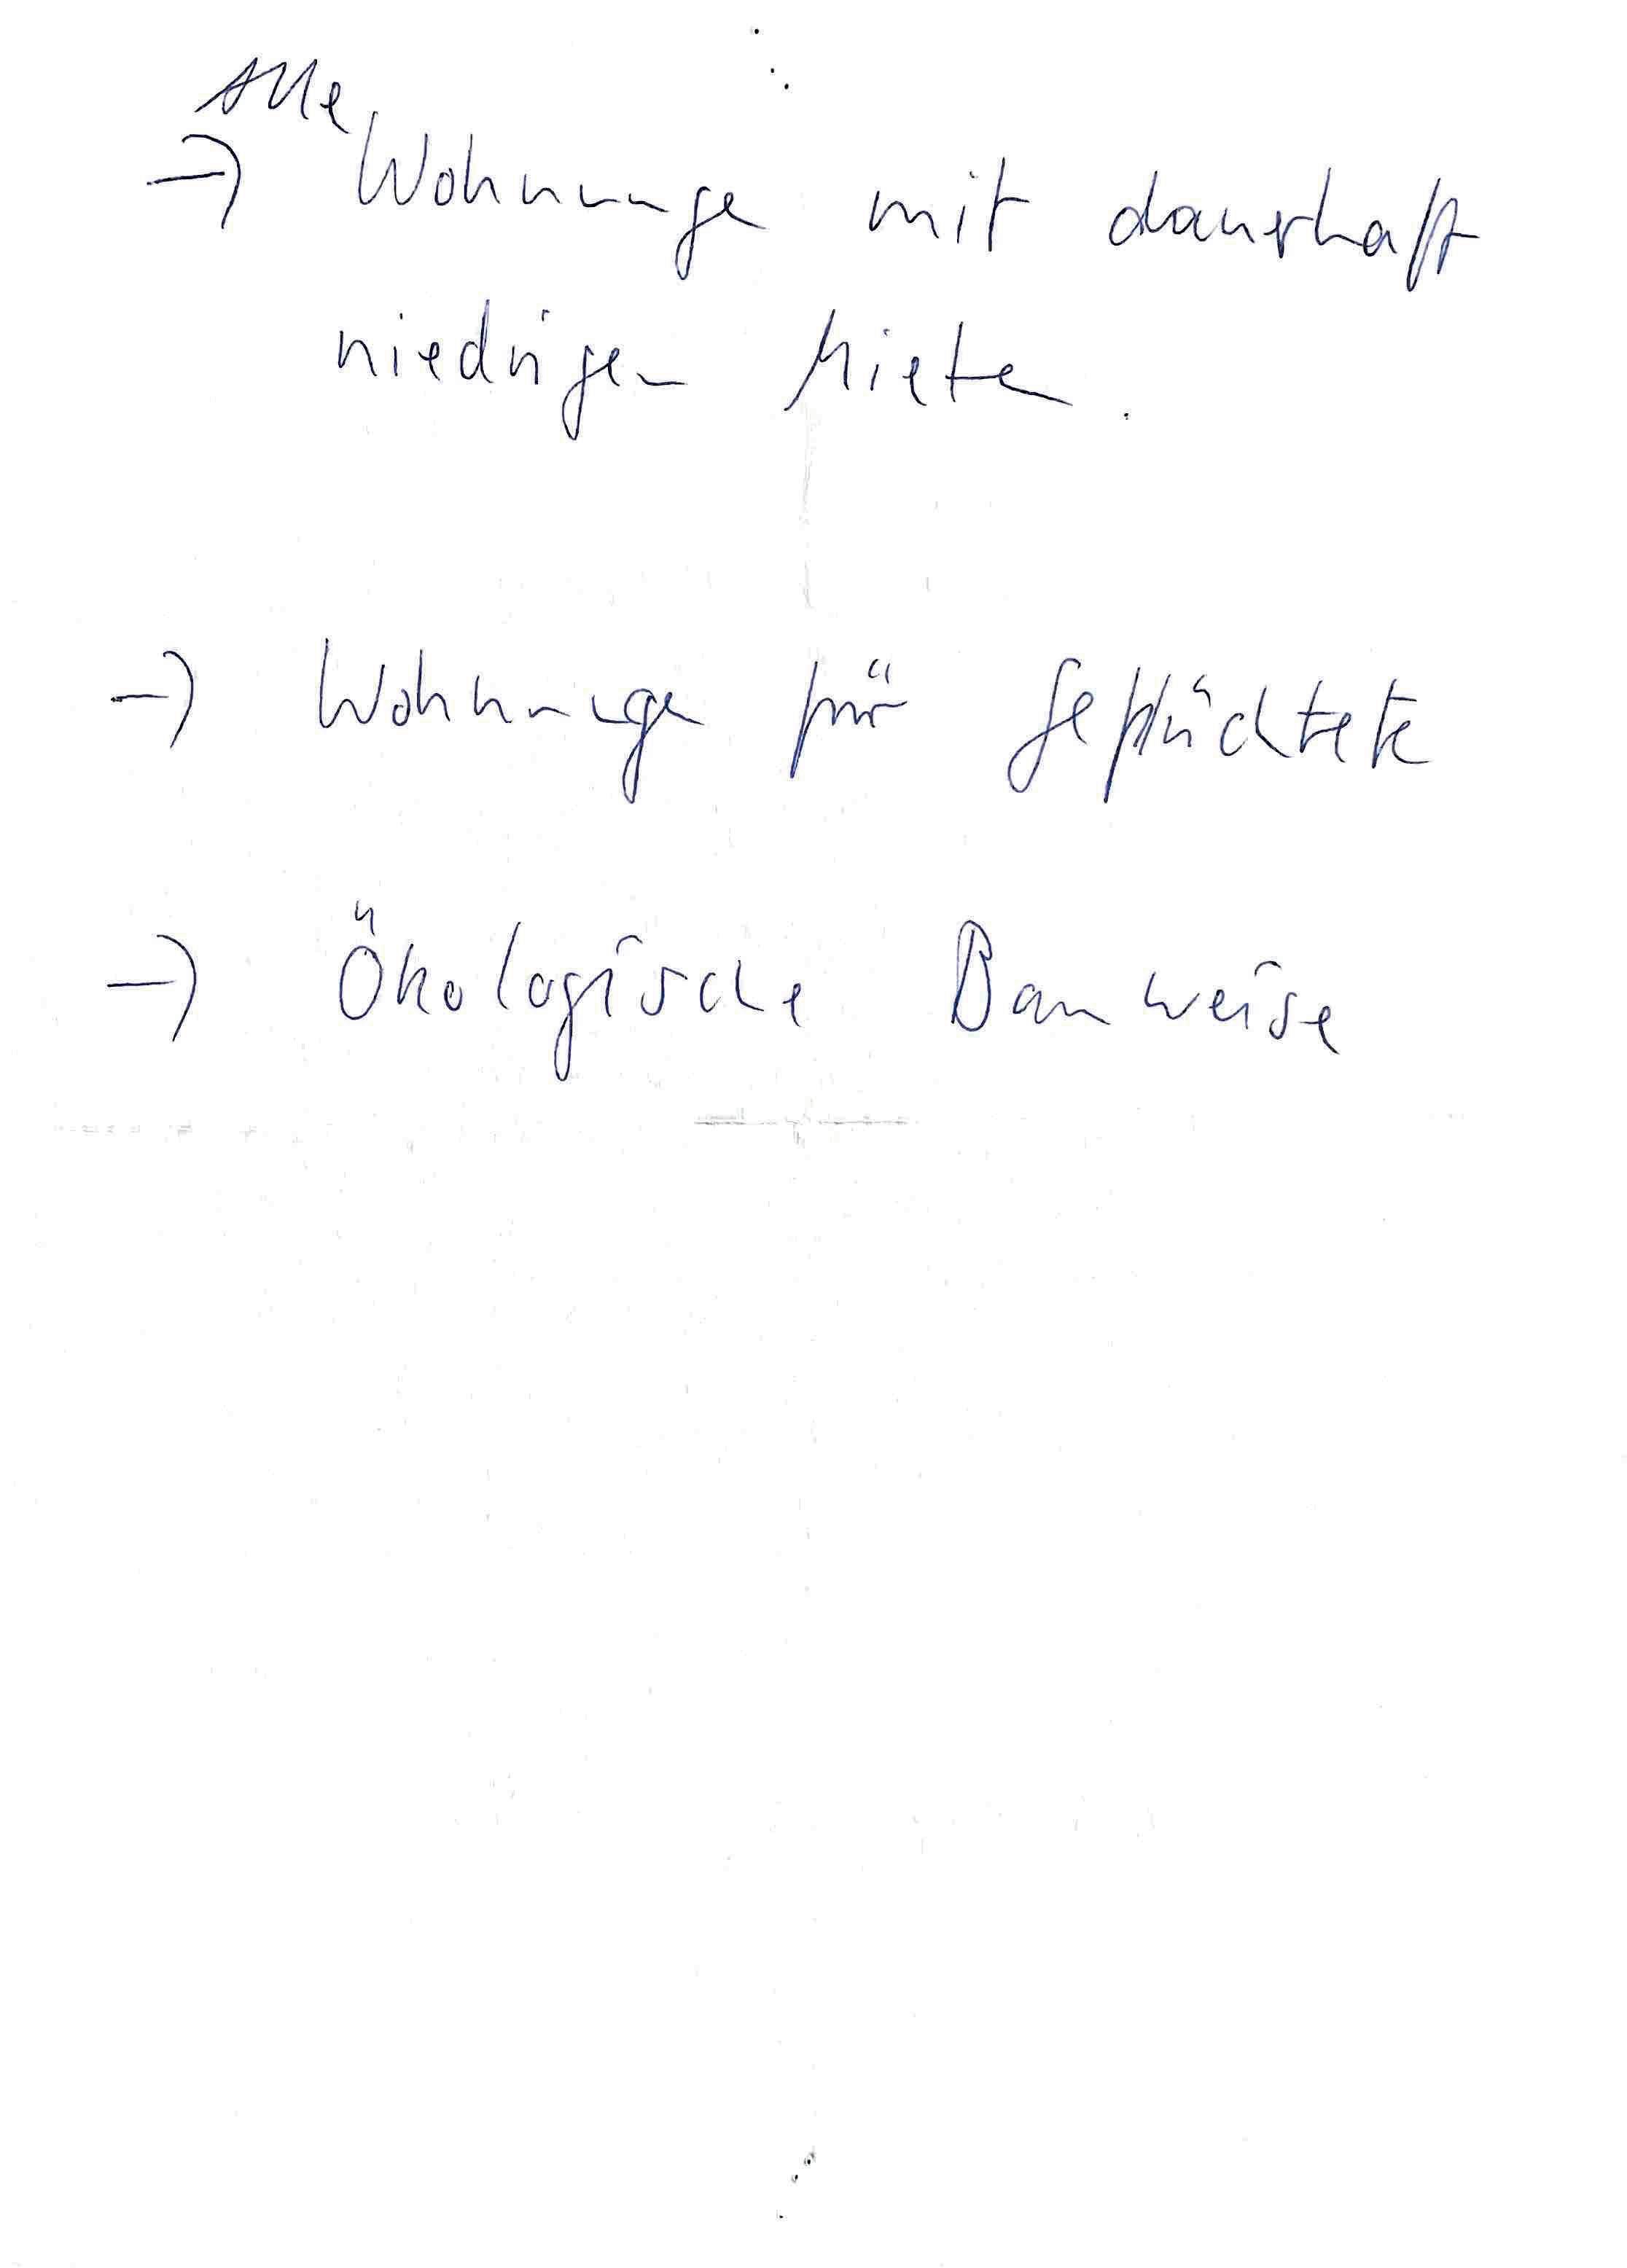 Alle
→ Wohnungen mit dauerhaft
niedrigen Mieten.
→ Wohnungen für Geflüchtete
→ Ökologische Bauweise